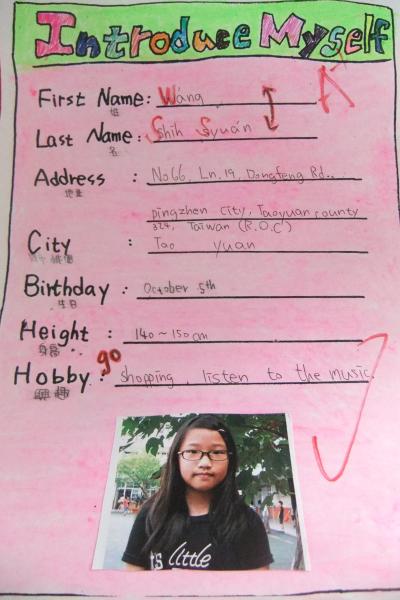 Introduce Myself
A+
First Name: Wáng
姓
Last Name: Shih Syuán
名
Address : No66, Ln. 19, Dongfeng Rd..
地址
pingzhen City, Taoyuan county
324, Taiwan (R.O.C)
City : Tao yuan
Birthday : October 5th
生日
Height : 140~150cm
身高
go
Hobby : shopping, listen to the music.
興趣
little